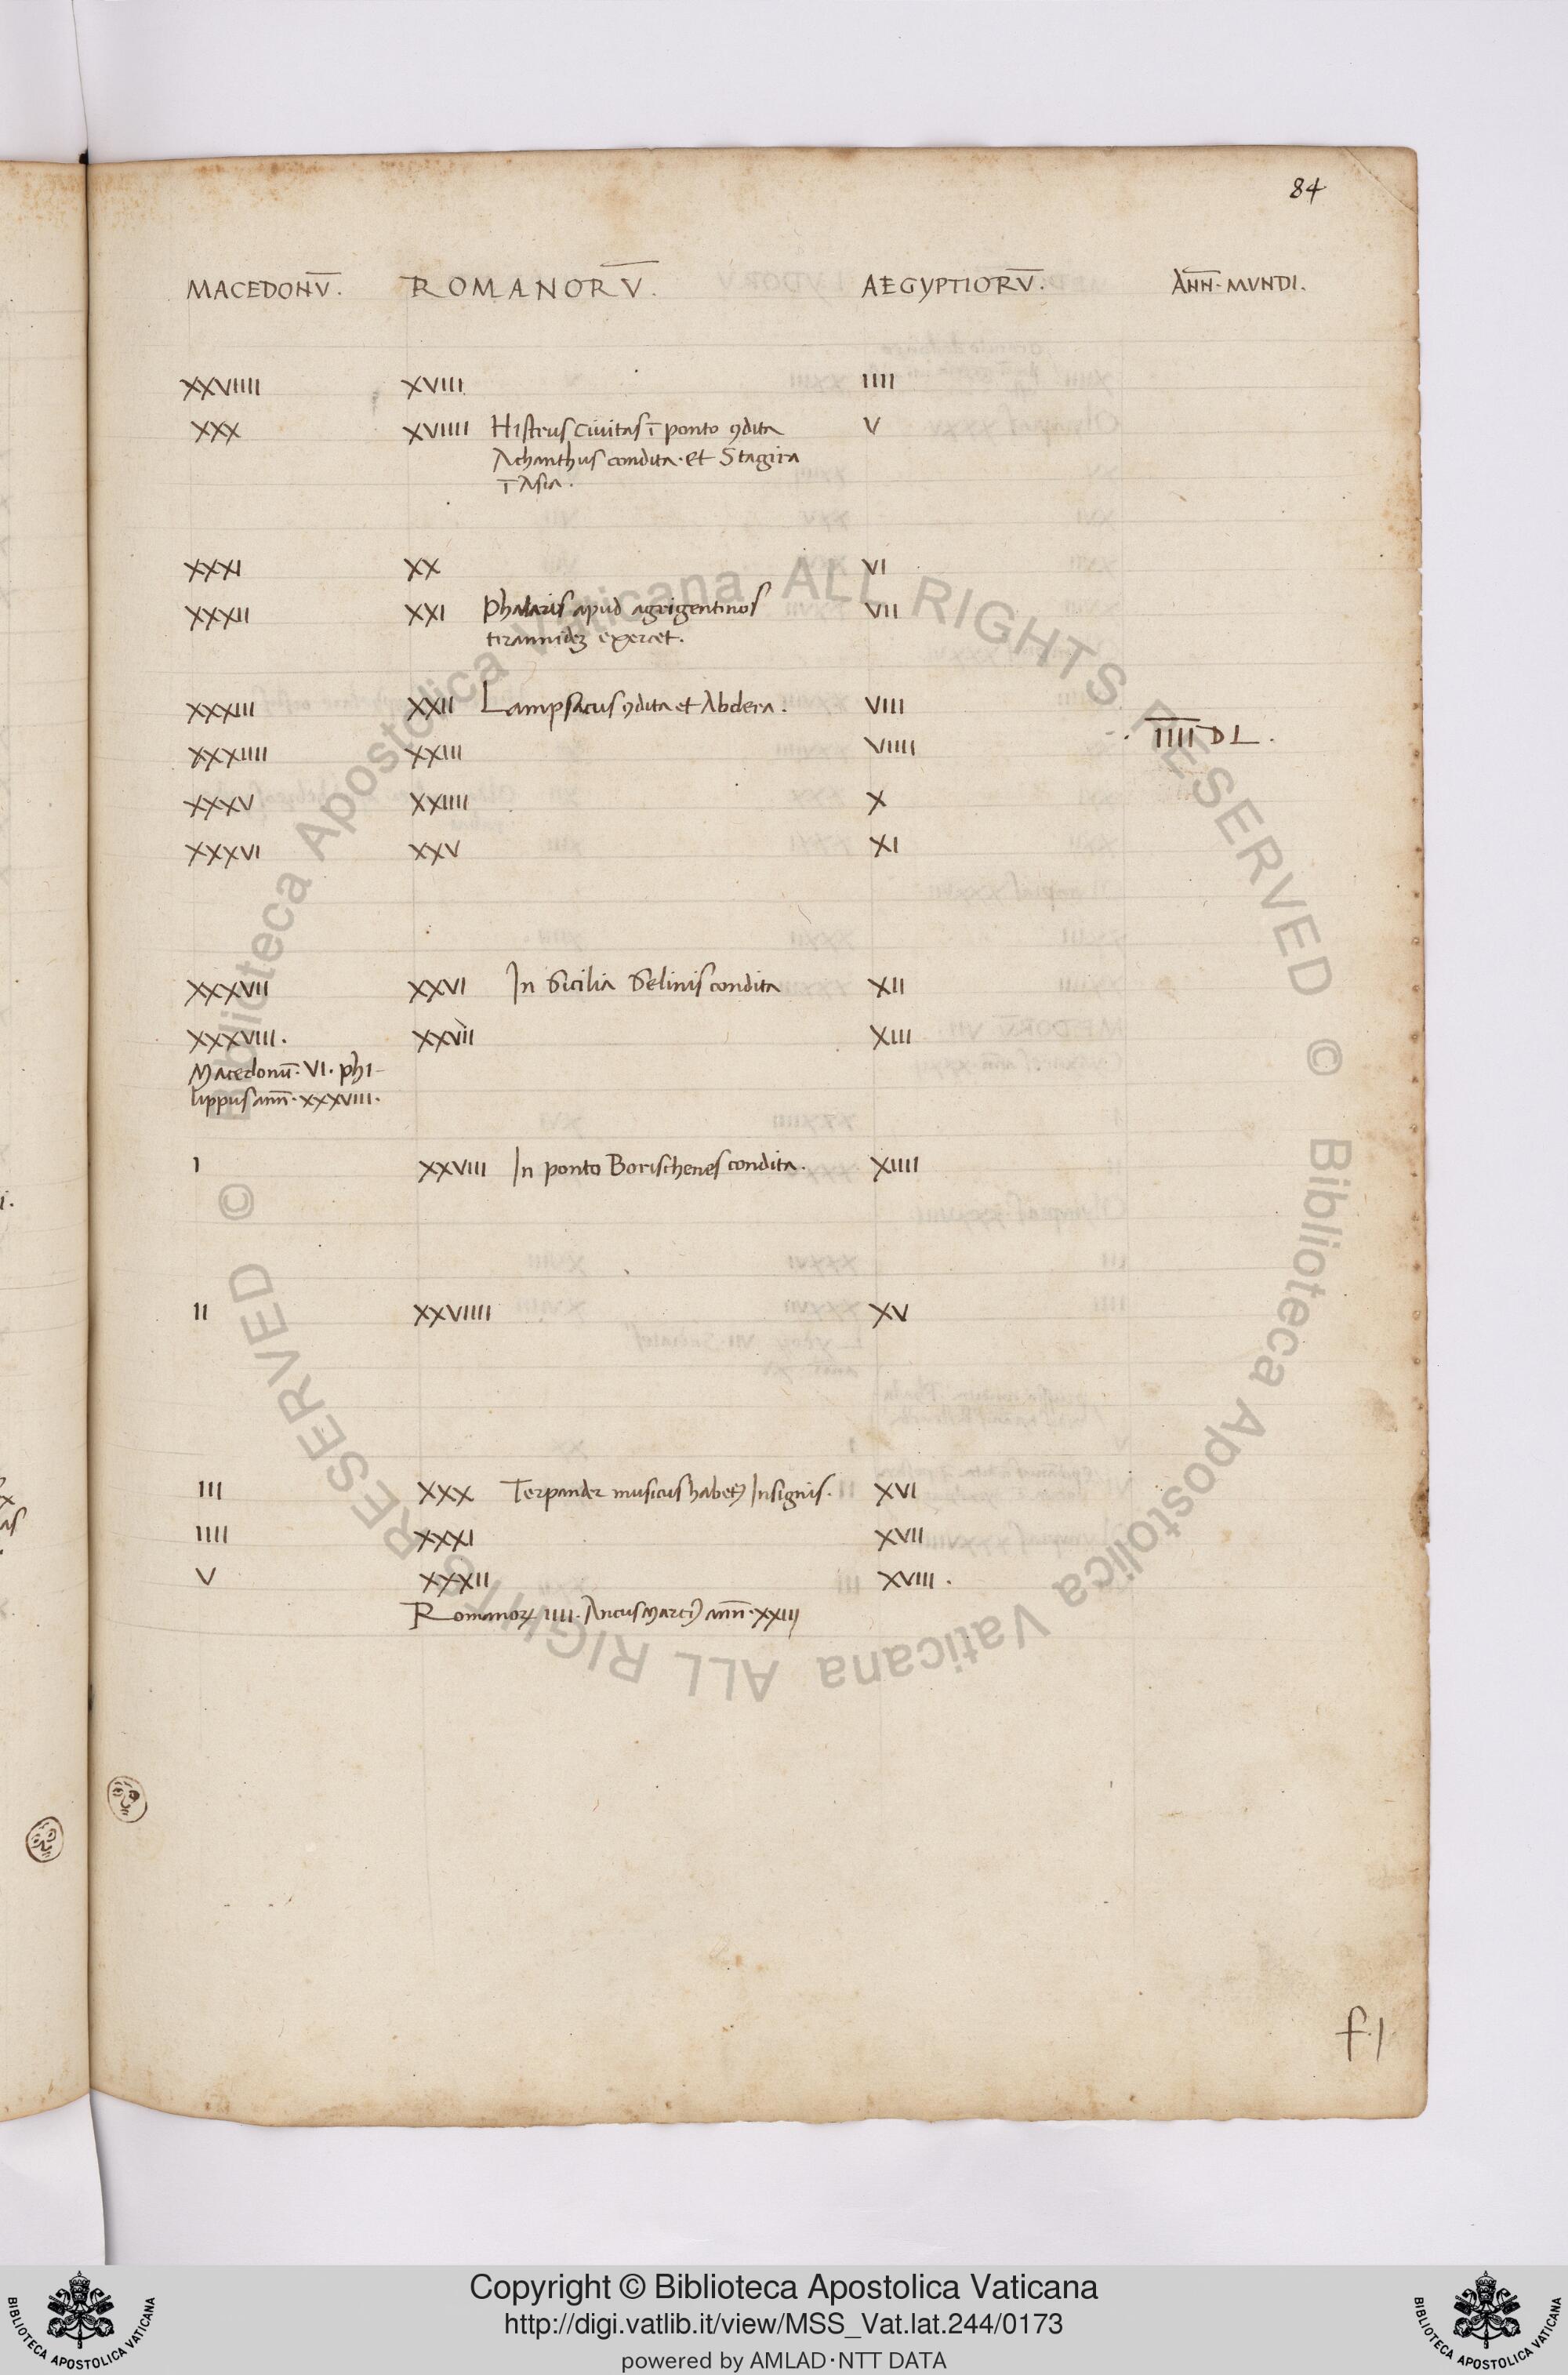 84
MACEDONV̄. ROMANORV̄. AEGYPTIORV̄. ĀNN̄· MVNDI.
XXVIIII XVIII IIII
XXX XVIIII Histrus civitas ī ponto ꝯdita V
Achanthus condita· et Stagira
ī Asia.
XXXI XX VI
XXXII XXI Phalaris apud agrigentinos VII
tirannideʒ exercet.
XXXIII XXII Lampsacus ꝯdita et Abdera. VIII
XXXIIII XXIII VIIII · I̅I̅I̅I̅ D L .
XXXV XXIIII X
XXXVI XXV XI
XXXVII XXVI In Sicilia Selinis condita XII
XXXVIII. XXVII XIII
Macedonū· VI· phi-
lippus ann̄· XXXVIII·
I XXVIII In ponto Borischenes condita. XIIII
II XXVIIII XV
III XXX Terpander musicus habet᷒ Insignis. XVI
IIII XXXI XVII
V XXXII XVIII.
Romanoꝝ IIII· Ancus Marciꝰ ann̄·XXIII
f.1
Biblioteca Apostolica Vaticana ALL RIGHTS RESERVED ©
Biblioteca Apostolica Vaticana ALL RIGHTS RESERVED ©
Copyright © Biblioteca Apostolica Vaticana
http://digi.vatlib.it/view/MSS_Vat.lat.244/0173
powered by AMLAD·NTT DATA
BIBLIOTECA APOSTOLICA VATICANA
BIBLIOTECA APOSTOLICA VATICANA